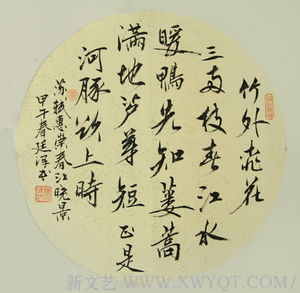 竹外桃花
三两枝春江水
暖鸭先知蒌蒿
满地芦芽短正是
河豚欲上时
苏轼惠崇春江晓景
甲午春廷泽书
新文艺 WWW.XWYQT.COM